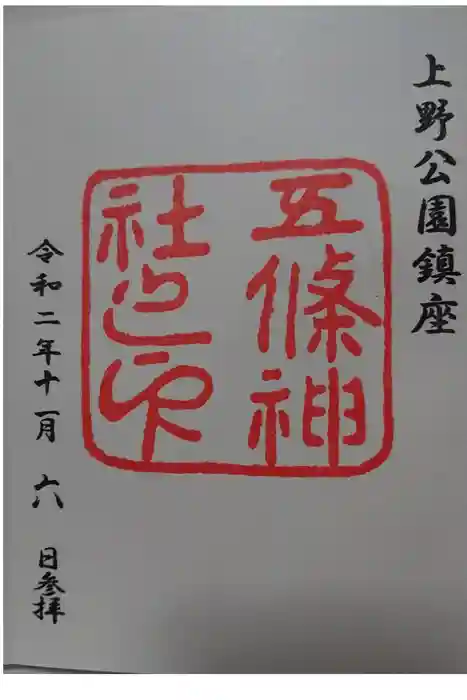 上野公園鎮座
五條神
社之印
令和二年十一月六日参拝